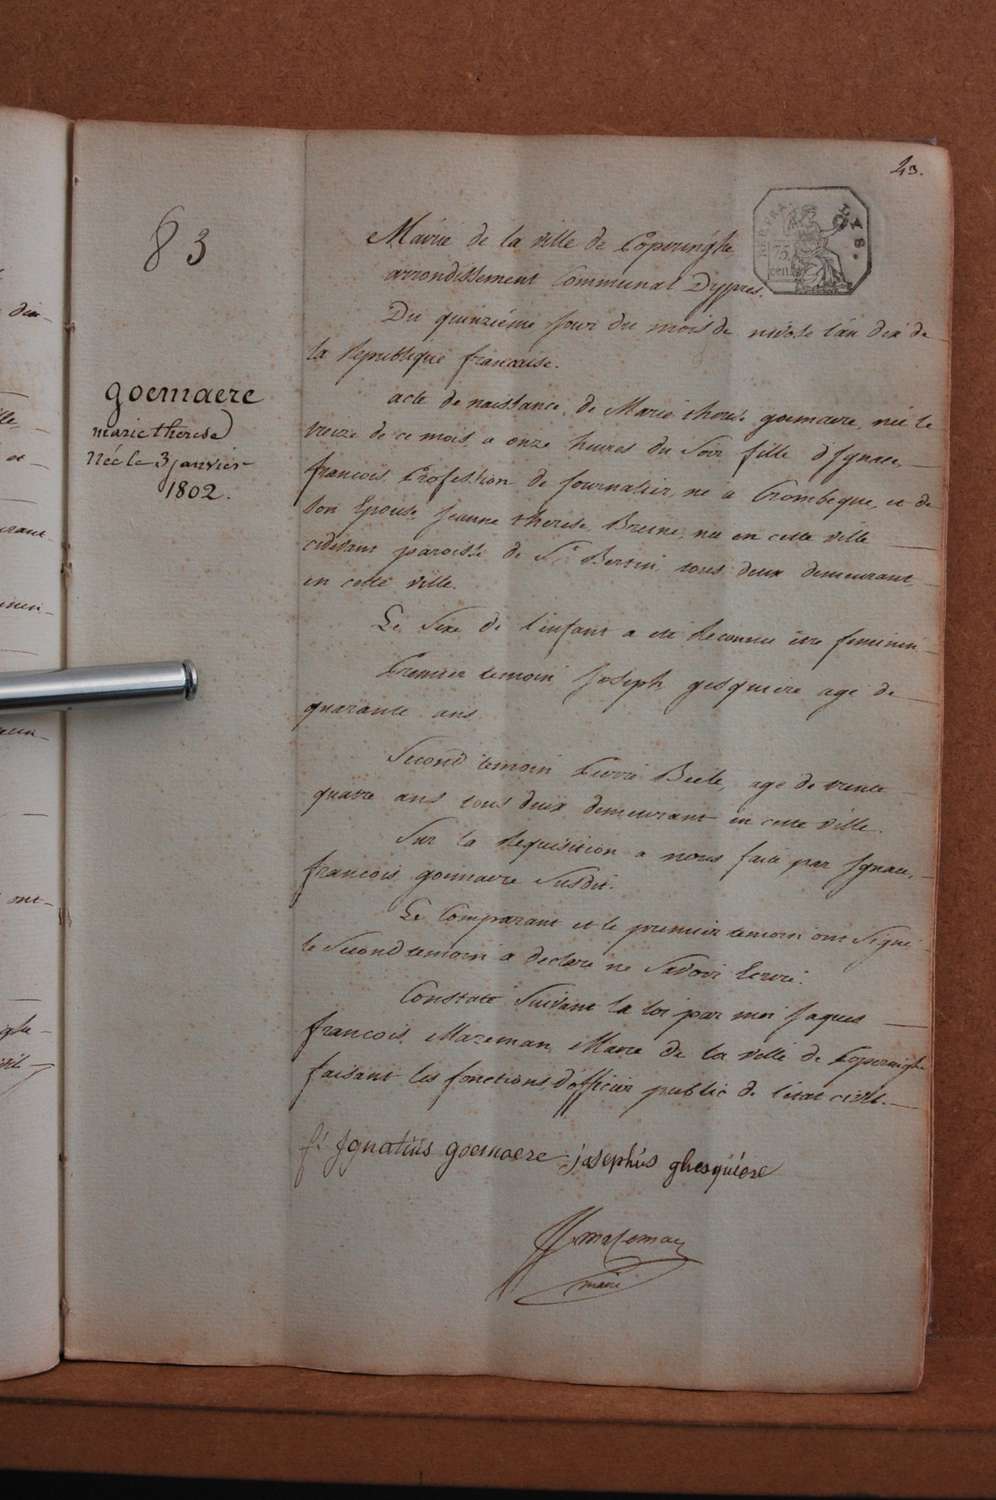 43.
83
Mairie de la ville de Poperinghe
arrondissement Communal Dypres.
75
cen
Du quinzième jour du mois de nivose l'an dix de
la Republique francaise.
goemaere
marie therese
Née le 3 janvier
1802.
acte de naissance de Marie therese goemaere, née le
treize de ce mois a onze heures du Soir fille d'Ignace
francois, Profession de Journalier, né a Crombeque, et de
Son Epouse Jeanne therese Breine, née en cette ville
cidevant paroisse de St Bertin tous deux demeurant
en cette ville.
Le Sexe de l'enfant a eté Reconnu etre feminin
Premier temoin Joseph gesquiere agé de
quarante ans
Second temoin Pierre Beele, agé de trente
quatre ans tous deux demeurant en cette ville.
Sur la Requisition a nous faite par Ignace
francois goemaere Susdit.
Le Comparant et le premier temoin ont Signé
le Second temoin a declaré ne Savoir Ecrire.
Constaté Suivant la loi par moi Jaques
francois Mazeman Maire de la ville de Poperinghe
faisant les fonctions d'officier public de l'etat civil.
fs Ignatius goemaere josephus ghesquiere
mazeman
maire